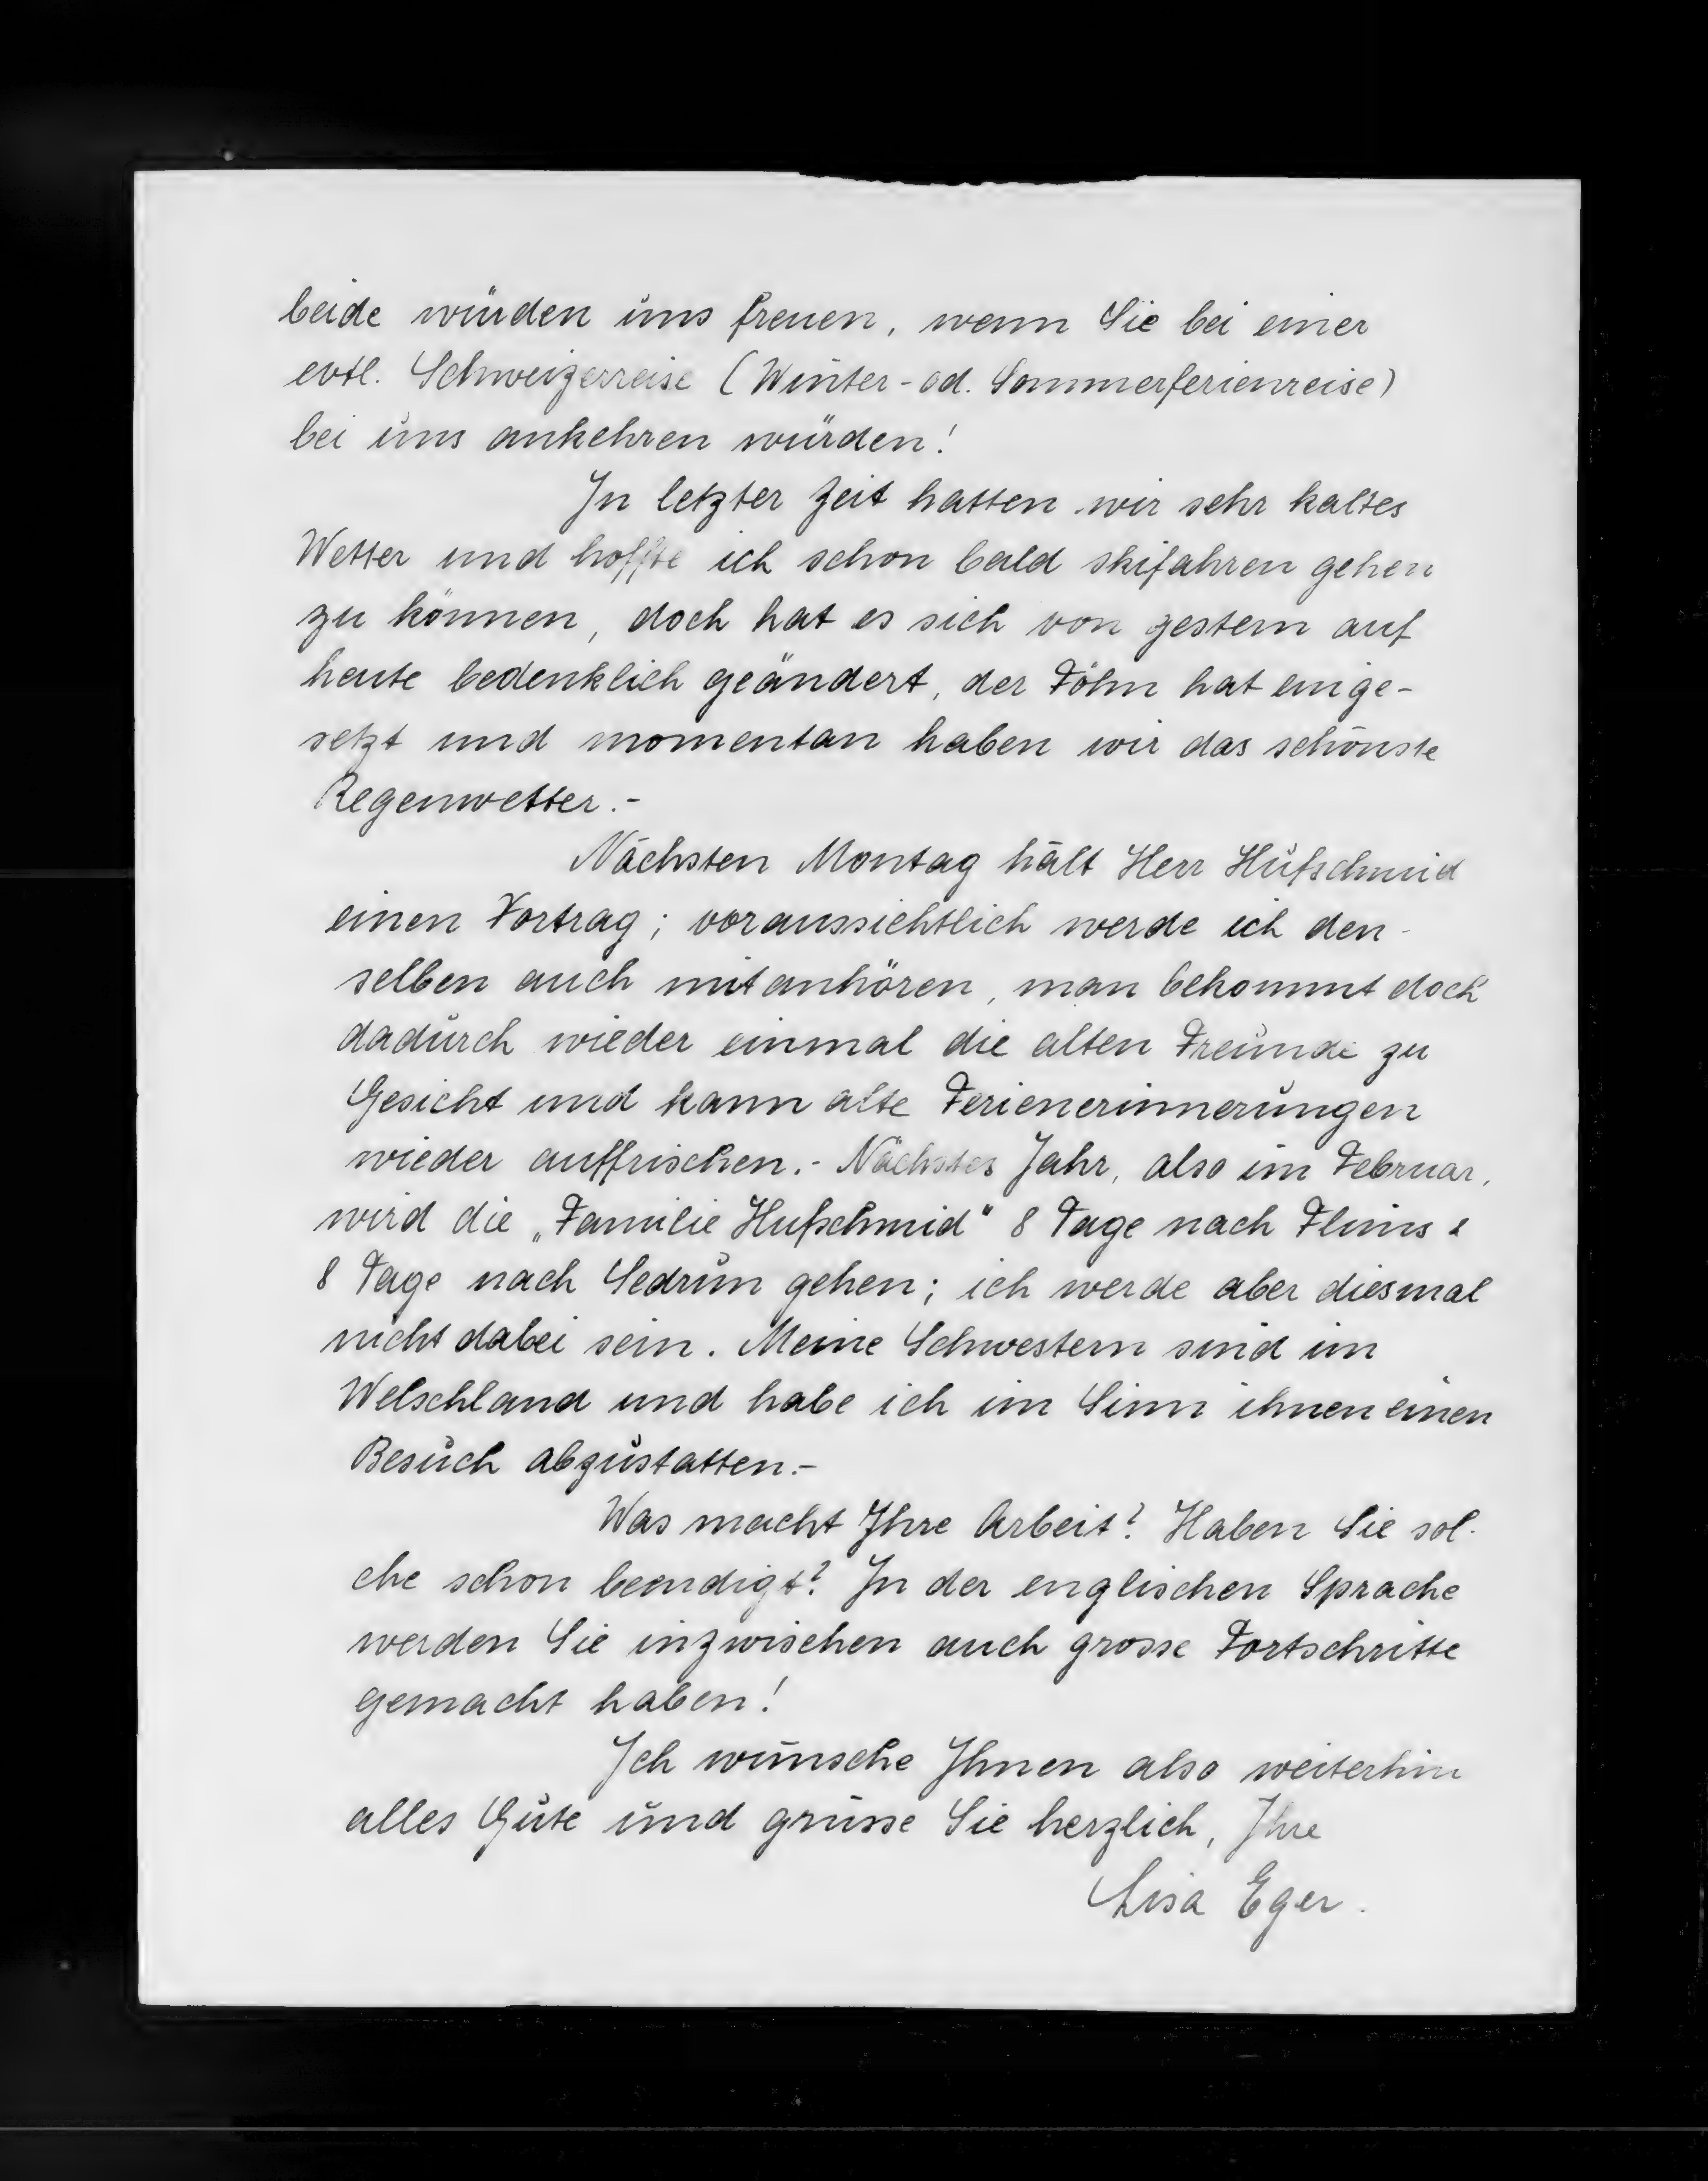 beide würden uns freuen, wenn Sie bei einer
evtl. Schweizerreise (Winter- od. Sommerferienreise)
bei uns ankehren würden!
In letzter Zeit hatten wir sehr kaltes
Wetter und hoffte ich schon bald skifahren gehen
zu können, doch hat es sich von gestern auf
heute bedenklich geändert, der Föhn hat einge-
setzt und momentan haben wir das schönste
Regenwetter.-
Nächsten Montag hält Herr Hufschmid
einen Vortrag; voraussichtlich werde ich den-
selben auch mitanhören, man bekommt doch
dadurch wieder einmal die alten Freunde zu
Gesicht und kann alte Ferienerinnerungen
wieder auffrischen.- Nächstes Jahr, also im Februar,
wird die „Familie Hufschmid" 8 Tage nach Flims &
8 Tage nach Sedrun gehen; ich werde aber diesmal
nicht dabei sein. Meine Schwestern sind im
Welschland und habe ich im Sinn ihnen einen
Besuch abzustatten.-
Was macht Ihre Arbeit? Haben Sie sol-
che schon beendigt? In der englischen Sprache
werden Sie inzwischen auch grosse Fortschritte
gemacht haben!
Ich wünsche Ihnen also weiterhin
alles Gute und grüsse Sie herzlich, Ihre
Lisa Eger.